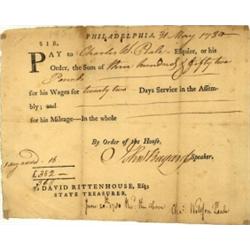 PHILADELPHIA, 31 May 1780
SIR,
PAY to Charles W. Peale Esquire, or his
Order, the Sum of three hundred & fifty two
Pounds
for his Wages for twenty two Days Service in the Assem-
bly; and
for his Mileage— In the whole
By Order of the House,
John Bayard Speaker,
£.352
To DAVID RITTENHOUSE, Esq;
STATE TREASURER.
June 20th 1780 Rec'd the above Chas Willson Peale